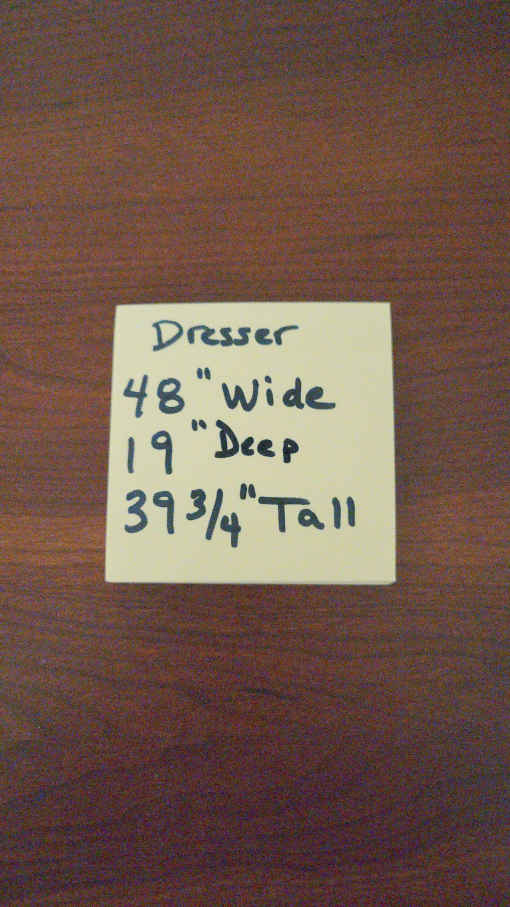 Dresser
48" Wide
19" Deep
39 3/4" Tall